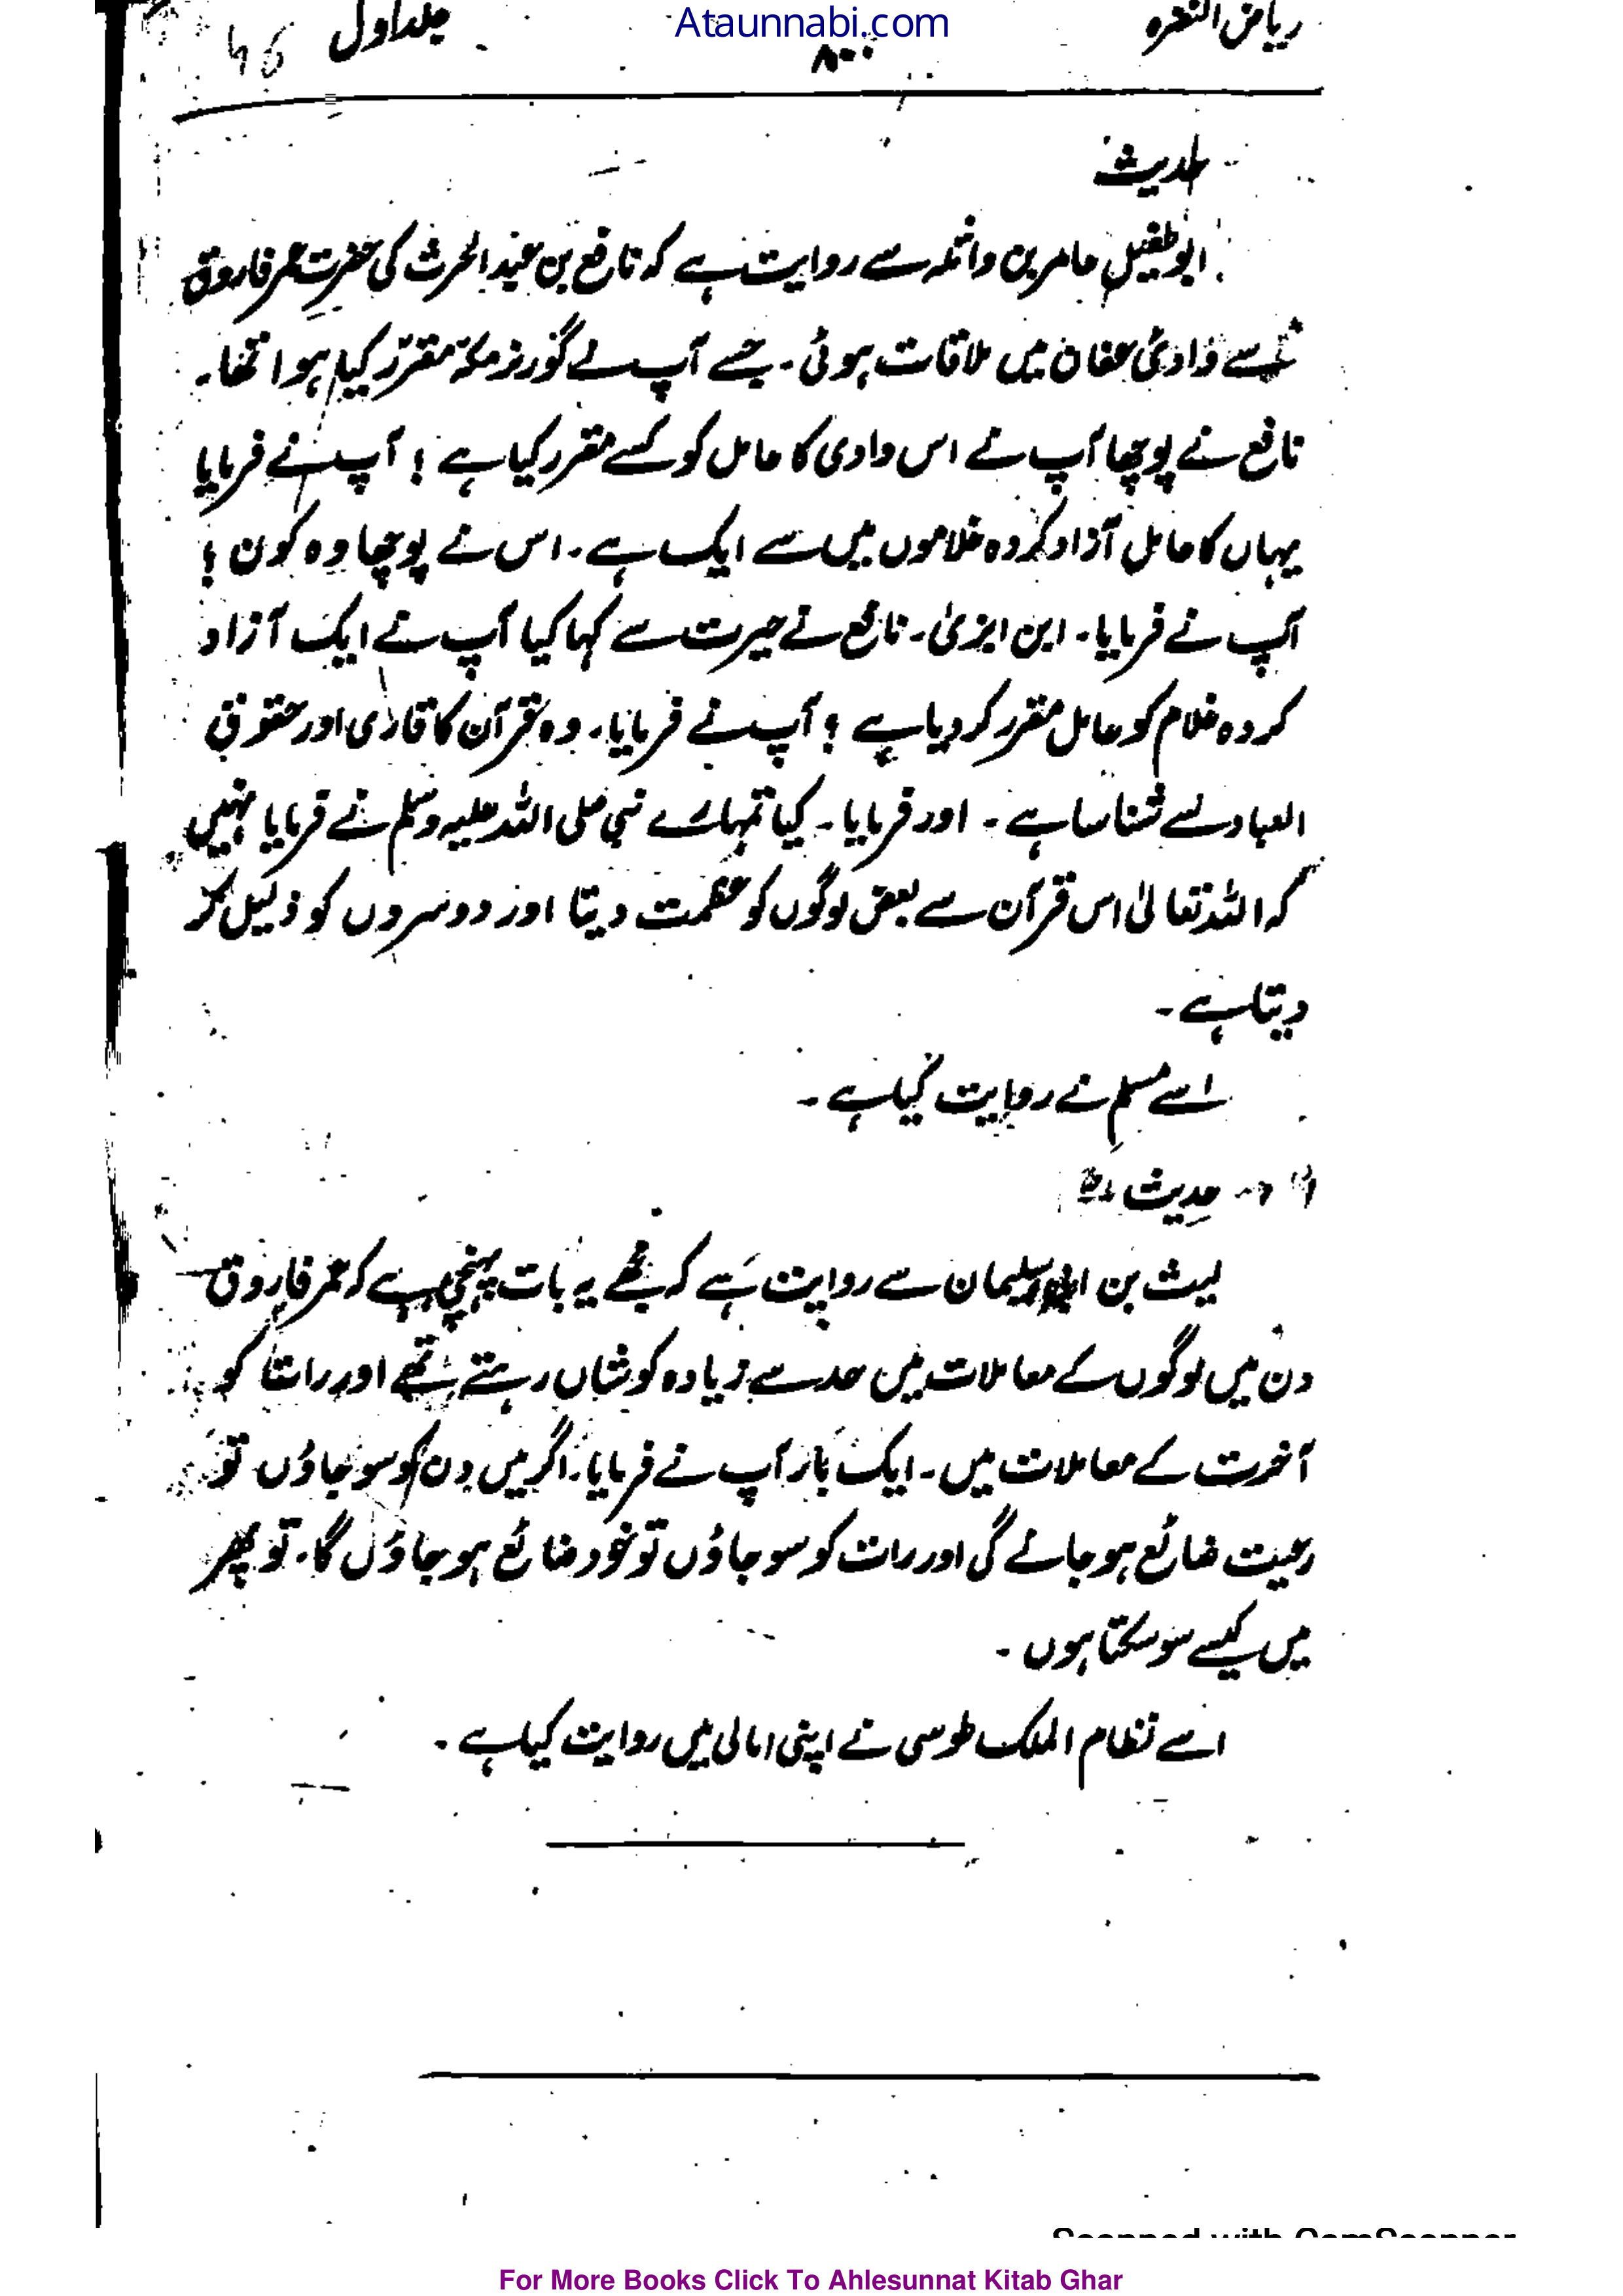 ریاض النضرہ
Ataunnabi.com
۸۰۰
جلد اول
حدیث
ابو طفیل عامر بن واثلہ سے روایت ہے کہ نافع بن عبد الحرث کی حضرت عمر فاروق
سے وادیٔ عفان میں ملاقات ہوئی۔ جسے آپ نے گورنر مکہ مقرر کیا ہوا تھا۔
نافع نے پوچھا آپ نے اس وادی کا عامل کو کسے مقرر کیا ہے ؟ آپ نے فرمایا
یہاں کا عامل آزاد کردہ غلاموں میں سے ایک ہے۔ اس نے پوچھا وہ کون ؟
آپ نے فرمایا۔ ابن ابزیٰ۔ نافع نے حیرت سے کہا کیا آپ نے ایک آزاد
کردہ غلام کو عامل مقرر کر دیا ہے ؟ آپ نے فرمایا۔ وہ قرآن کا قاری اور حقوق
العباد سے شناسا ہے ۔ اور فرمایا۔ کیا تمہارے نبی صلی اللہ علیہ وسلم نے فرمایا نہیں
کہ اللہ تعالیٰ اس قرآن سے بعض لوگوں کو عظمت دیتا اور دوسروں کو ذلیل کر
دیتا ہے ۔
اسے مسلم نے روایت کیا ہے ۔
حدیث
لیث بن سلیمان سے روایت ہے کہ مجھے یہ بات پہنچی ہے کہ عمر فاروق
دن میں لوگوں کے معاملات میں حد سے زیادہ کوشاں رہتے تھے اور رات کو
آخرت کے معاملات میں۔ ایک بار آپ نے فرمایا۔ اگر میں دن کو سو جاؤں تو
رعیت ضائع ہو جائے گی اور رات کو سو جاؤں تو خود ضائع ہو جاؤں گا۔ تو پھر
میں کیسے سو سکتا ہوں ۔
اسے نظام الملک طوسی نے اپنی امالی میں روایت کیا ہے ۔
Scanned with CamScanner
For More Books Click To Ahlesunnat Kitab Ghar